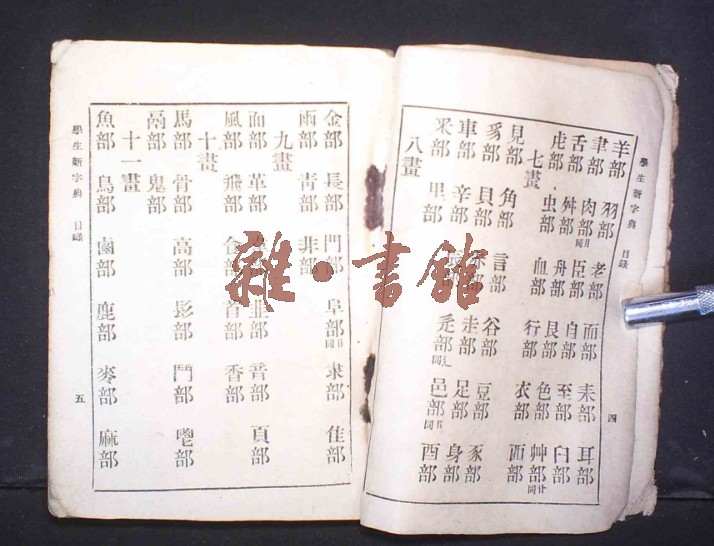 學生新字典 目錄 四
羊部 羽部 老部 而部 耒部 耳部
聿部 肉部月同 臣部 自部 至部 臼部
舌部 舛部 舟部 艮部 色部 艸部艹同
虍部 虫部 血部 行部 衣部 襾部
七畫
見部 角部 言部 谷部 豆部 豕部
豸部 貝部 赤部 走部 足部 身部
車部 辛部 辰部 辵部辶同 邑部阝同 酉部
釆部 里部
八畫
金部 長部 門部 阜部阝同 隶部 隹部
雨部 青部 非部
九畫
面部 革部 韋部 韭部 音部 頁部
風部 飛部 食部 首部 香部
十畫
馬部 骨部 高部 髟部 鬥部 鬯部
鬲部 鬼部
十一畫
魚部 鳥部 鹵部 鹿部 麥部 麻部
學生新字典 目錄 五
雜·書館